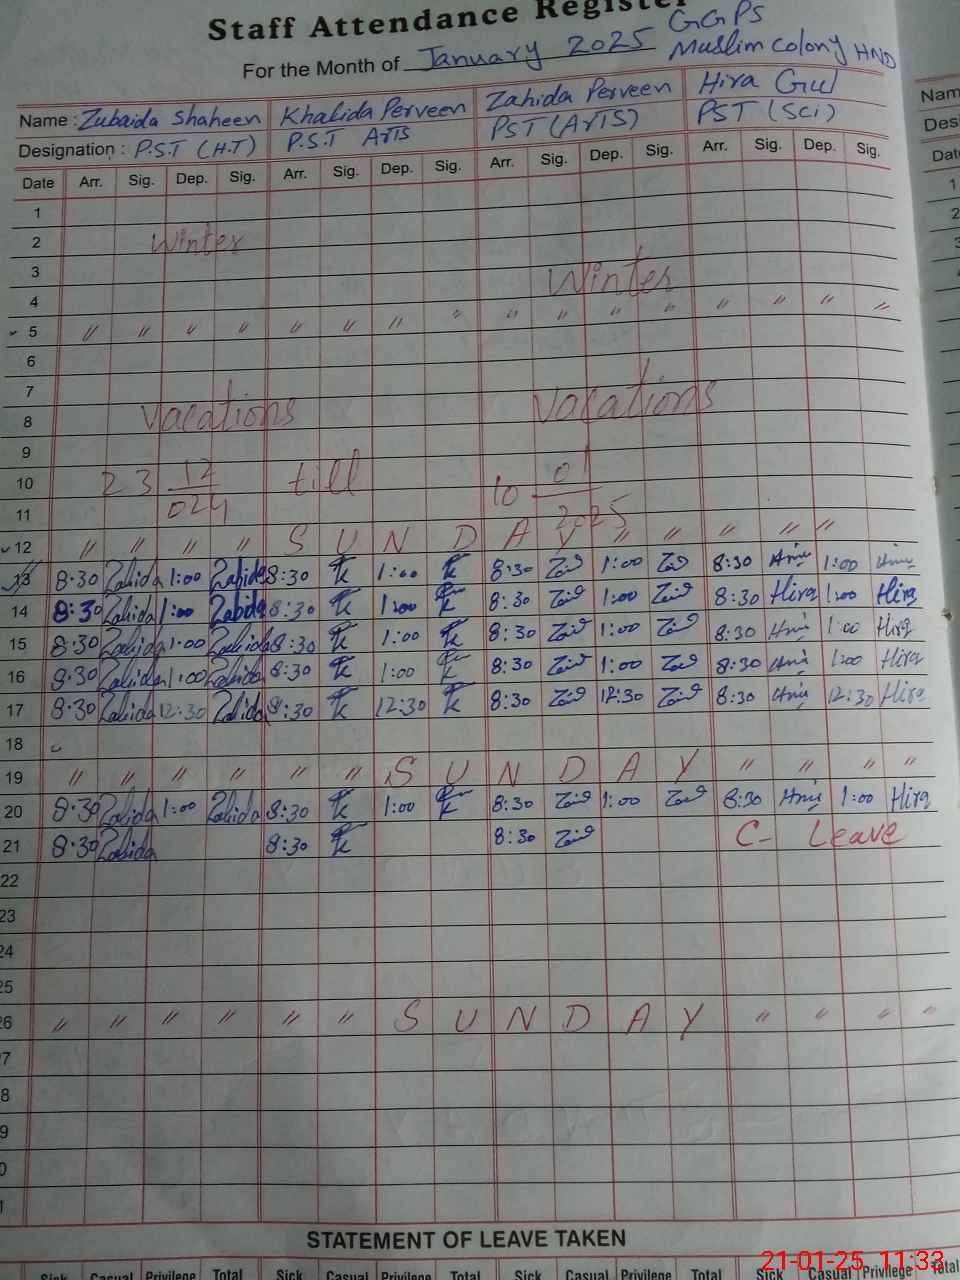 Staff Attendance Register
GGPS
For the Month of January 2025 Muslim Colony HND
Name : Zubaida Shaheen Khalida Perveen Zahida Perveen Hira Gul
Designation : P.S.T (H.T) P.S.T Arts PST (Arts) PST (Sci)
Date Arr. Sig. Dep. Sig. Arr. Sig. Dep. Sig. Arr. Sig. Dep. Sig. Arr. Sig. Dep. Sig.
1
2 Winter
3 Winter
4
5 " " " " " " " " " " " " " " " "
6
7
8 Vacations Vacations
9
10 23 12/024 till 10 01/2025
11
12 " " " " S U N D A Y " " " " "
13 8:30 Zabida 1:00 Zabida 8:30 1:00 8:30 1:00 8:30 1:00
14 8:30 Zabida 1:00 Zabida 8:30 1:00 8:30 1:00 8:30 Hira 1:00 Hira
15 8:30 Zabida 1:00 Zabida 8:30 1:00 8:30 1:00 8:30 1:00 Hira
16 8:30 Zabida 1:00 Zabida 8:30 1:00 8:30 1:00 8:30 1:00 Hira
17 8:30 Zabida 12:30 Zabida 8:30 12:30 8:30 12:30 8:30 12:30 Hira
18
19 " " " " " " S U N D A Y " " " "
20 8:30 Zabida 1:00 Zabida 8:30 1:00 8:30 1:00 8:30 1:00 Hira
21 8:30 Zabida 8:30 8:30 C- Leave
22
23
24
25
26 " " " " " " S U N D A Y " " " "
7
8
9
0
1
STATEMENT OF LEAVE TAKEN
Sick Casual Privilege Total Sick Casual Privilege Total Sick Casual Privilege Total Sick Casual Privilege Total
21-01-25 11:33